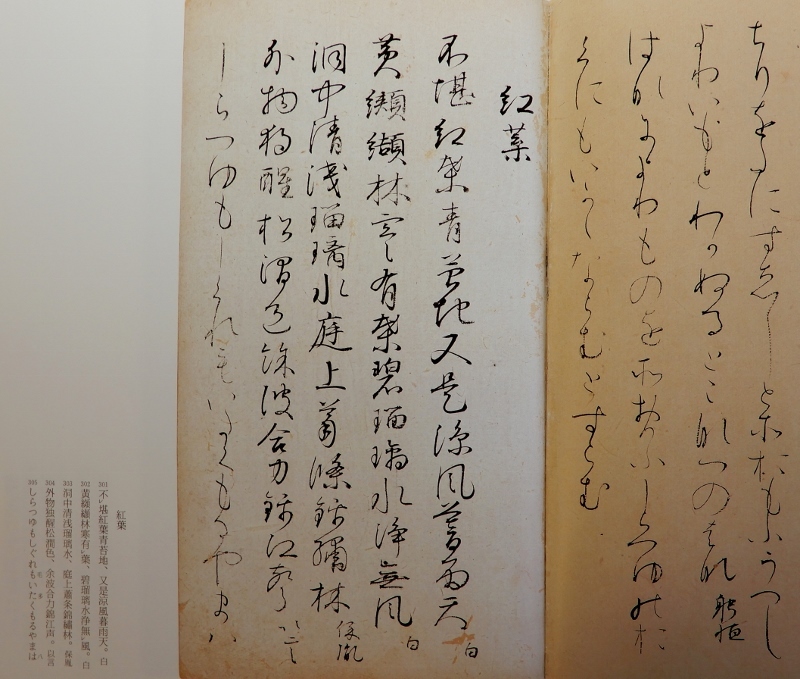 ちりをたにすゑしとそおもふうつし
よりいもとわかぬるとこなつのはな 躬恒
はなによりものをそおもふしらつゆのお
くにもいかゝならむとすらむ
紅葉
不堪紅葉青苔地又是涼風暮雨天 白
黄纐纈林寒有葉碧瑠璃水浄無風 白
洞中清浅瑠璃水庭上蕭條錦繡林 保胤
外物独醒松澗色餘波合力錦江声 以言
しらつゆもしくれもいたくもるやまは
紅葉
301 不堪紅葉青苔地、又是涼風暮雨天。白
302 黄纐纈林寒有葉、碧瑠璃水浄無風。白
303 洞中清浅瑠璃水、庭上蕭条錦繡林。保胤
304 外物独醒松澗色、余波合力錦江声。以言
305 しらつゆもしぐれもいたくもるやまは